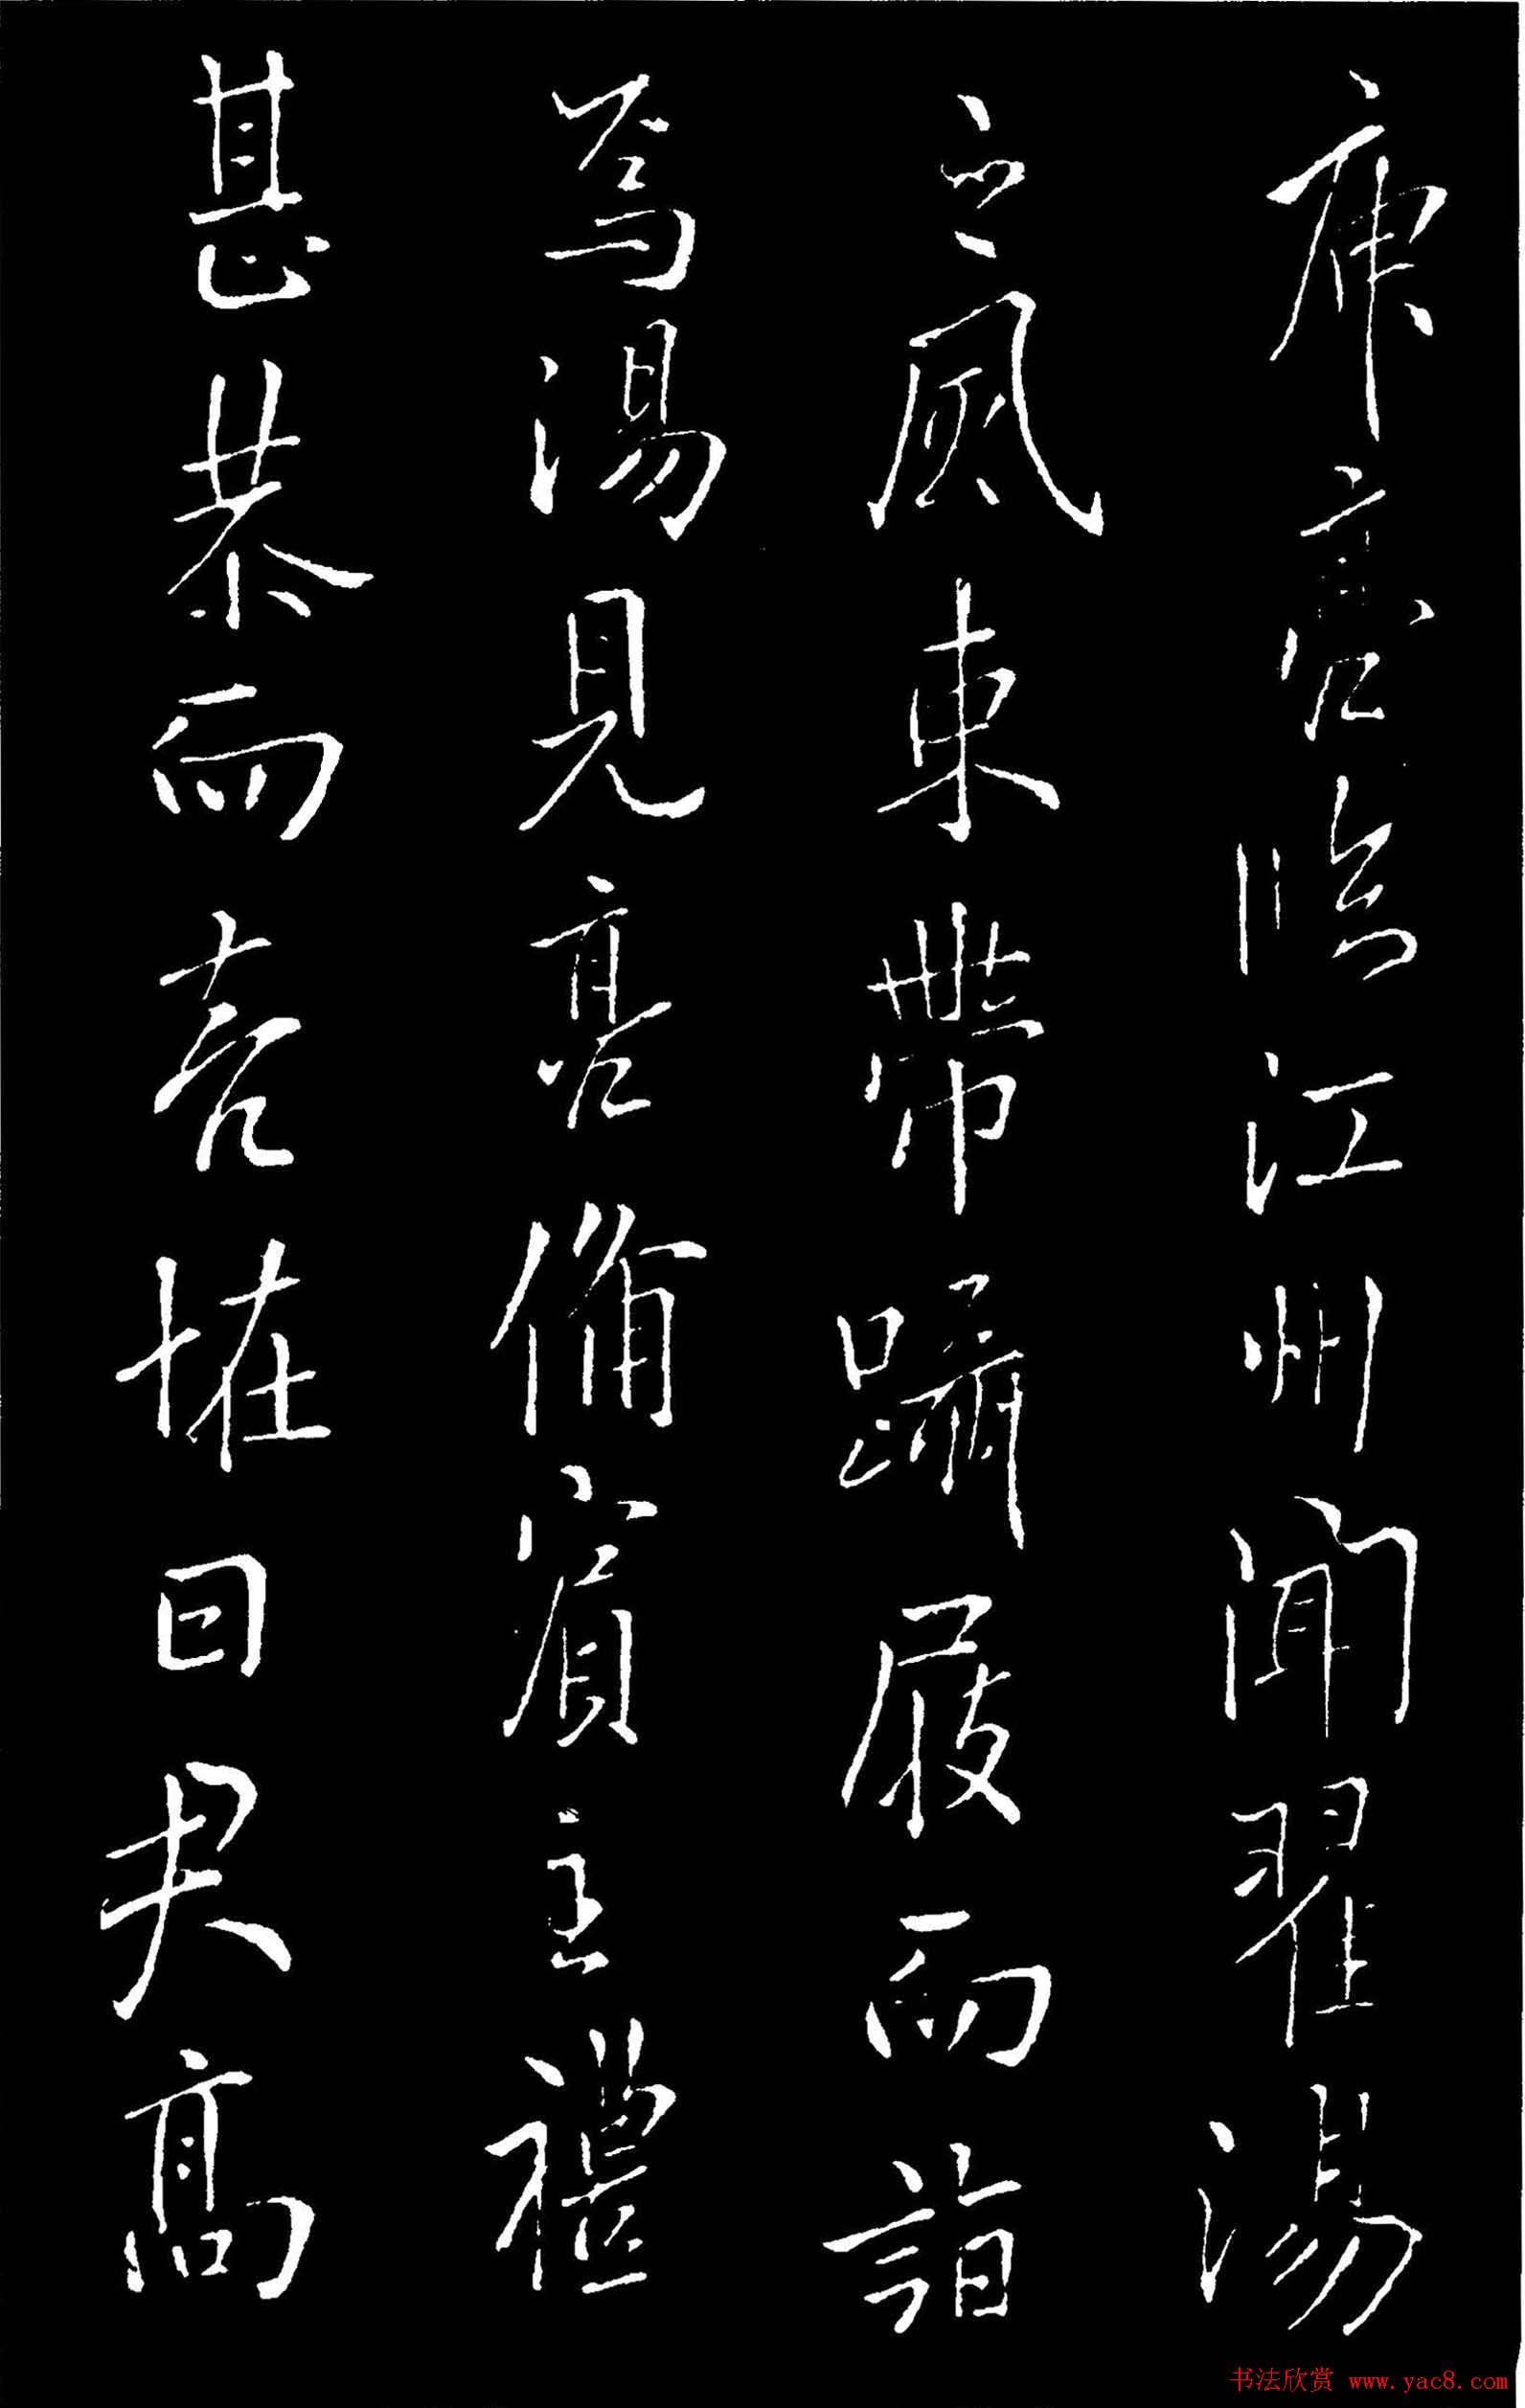 庾亮臨江州聞翟湯
之風束帶躡屐而詣
焉湯見亮備賓主禮
甚恭而曰高
书法欣赏 www.yac8.com